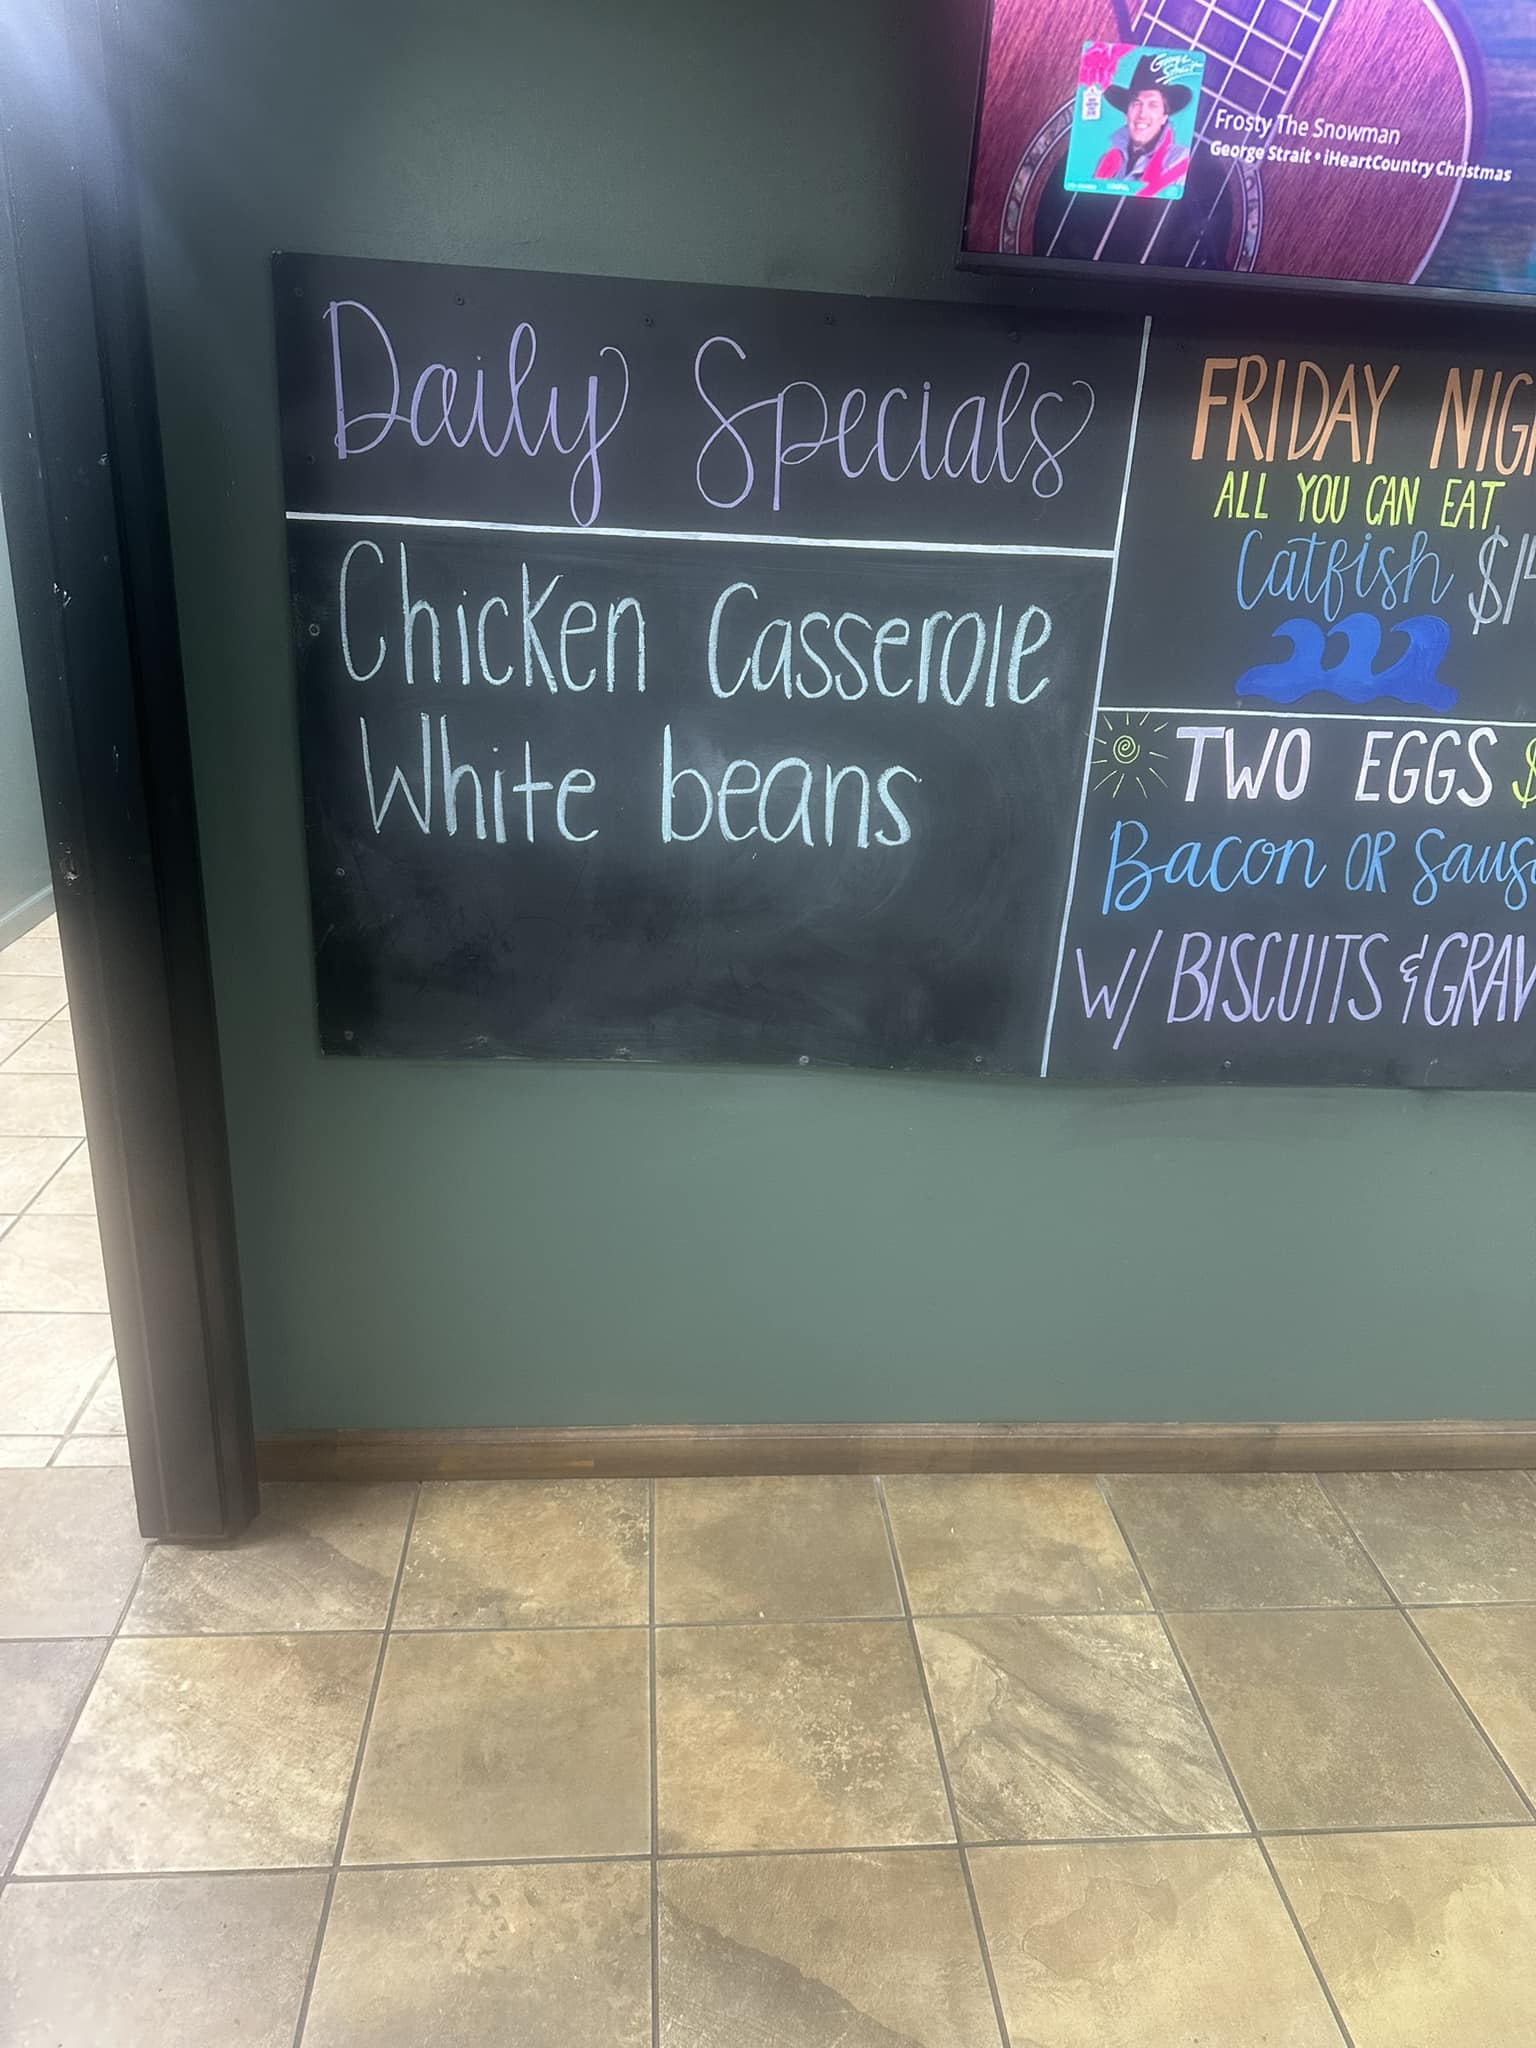 George Strait
Frosty The Snowman
George Strait • iHeartCountry Christmas
Daily Specials
Chicken Casserole
White beans
FRIDAY
ALL YOU CAN EAT
Catfish
TWO EGGS
Bacon OR
W/ BISCUITS &